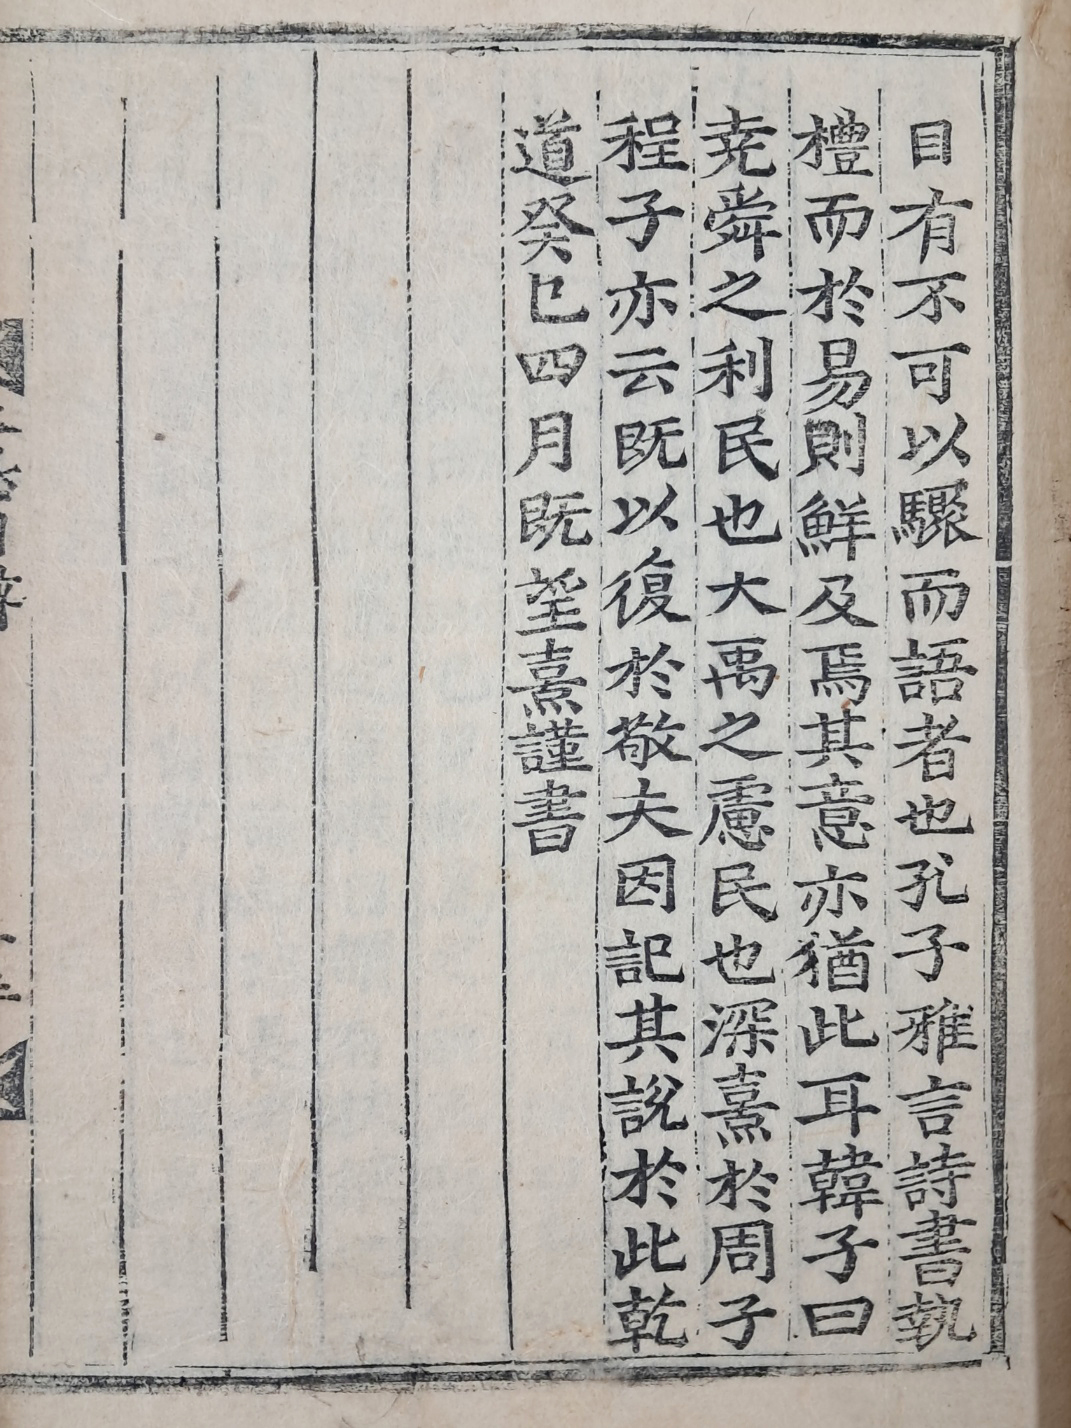 目有不可以驟而語者也孔子雅言詩書執
禮而於易則鮮及焉其意亦猶此耳韓子曰
尭舜之利民也大禹之慮民也深熹於周子
程子亦云既以復於敬夫因記其說於此乾
道癸巳四月既望熹謹書